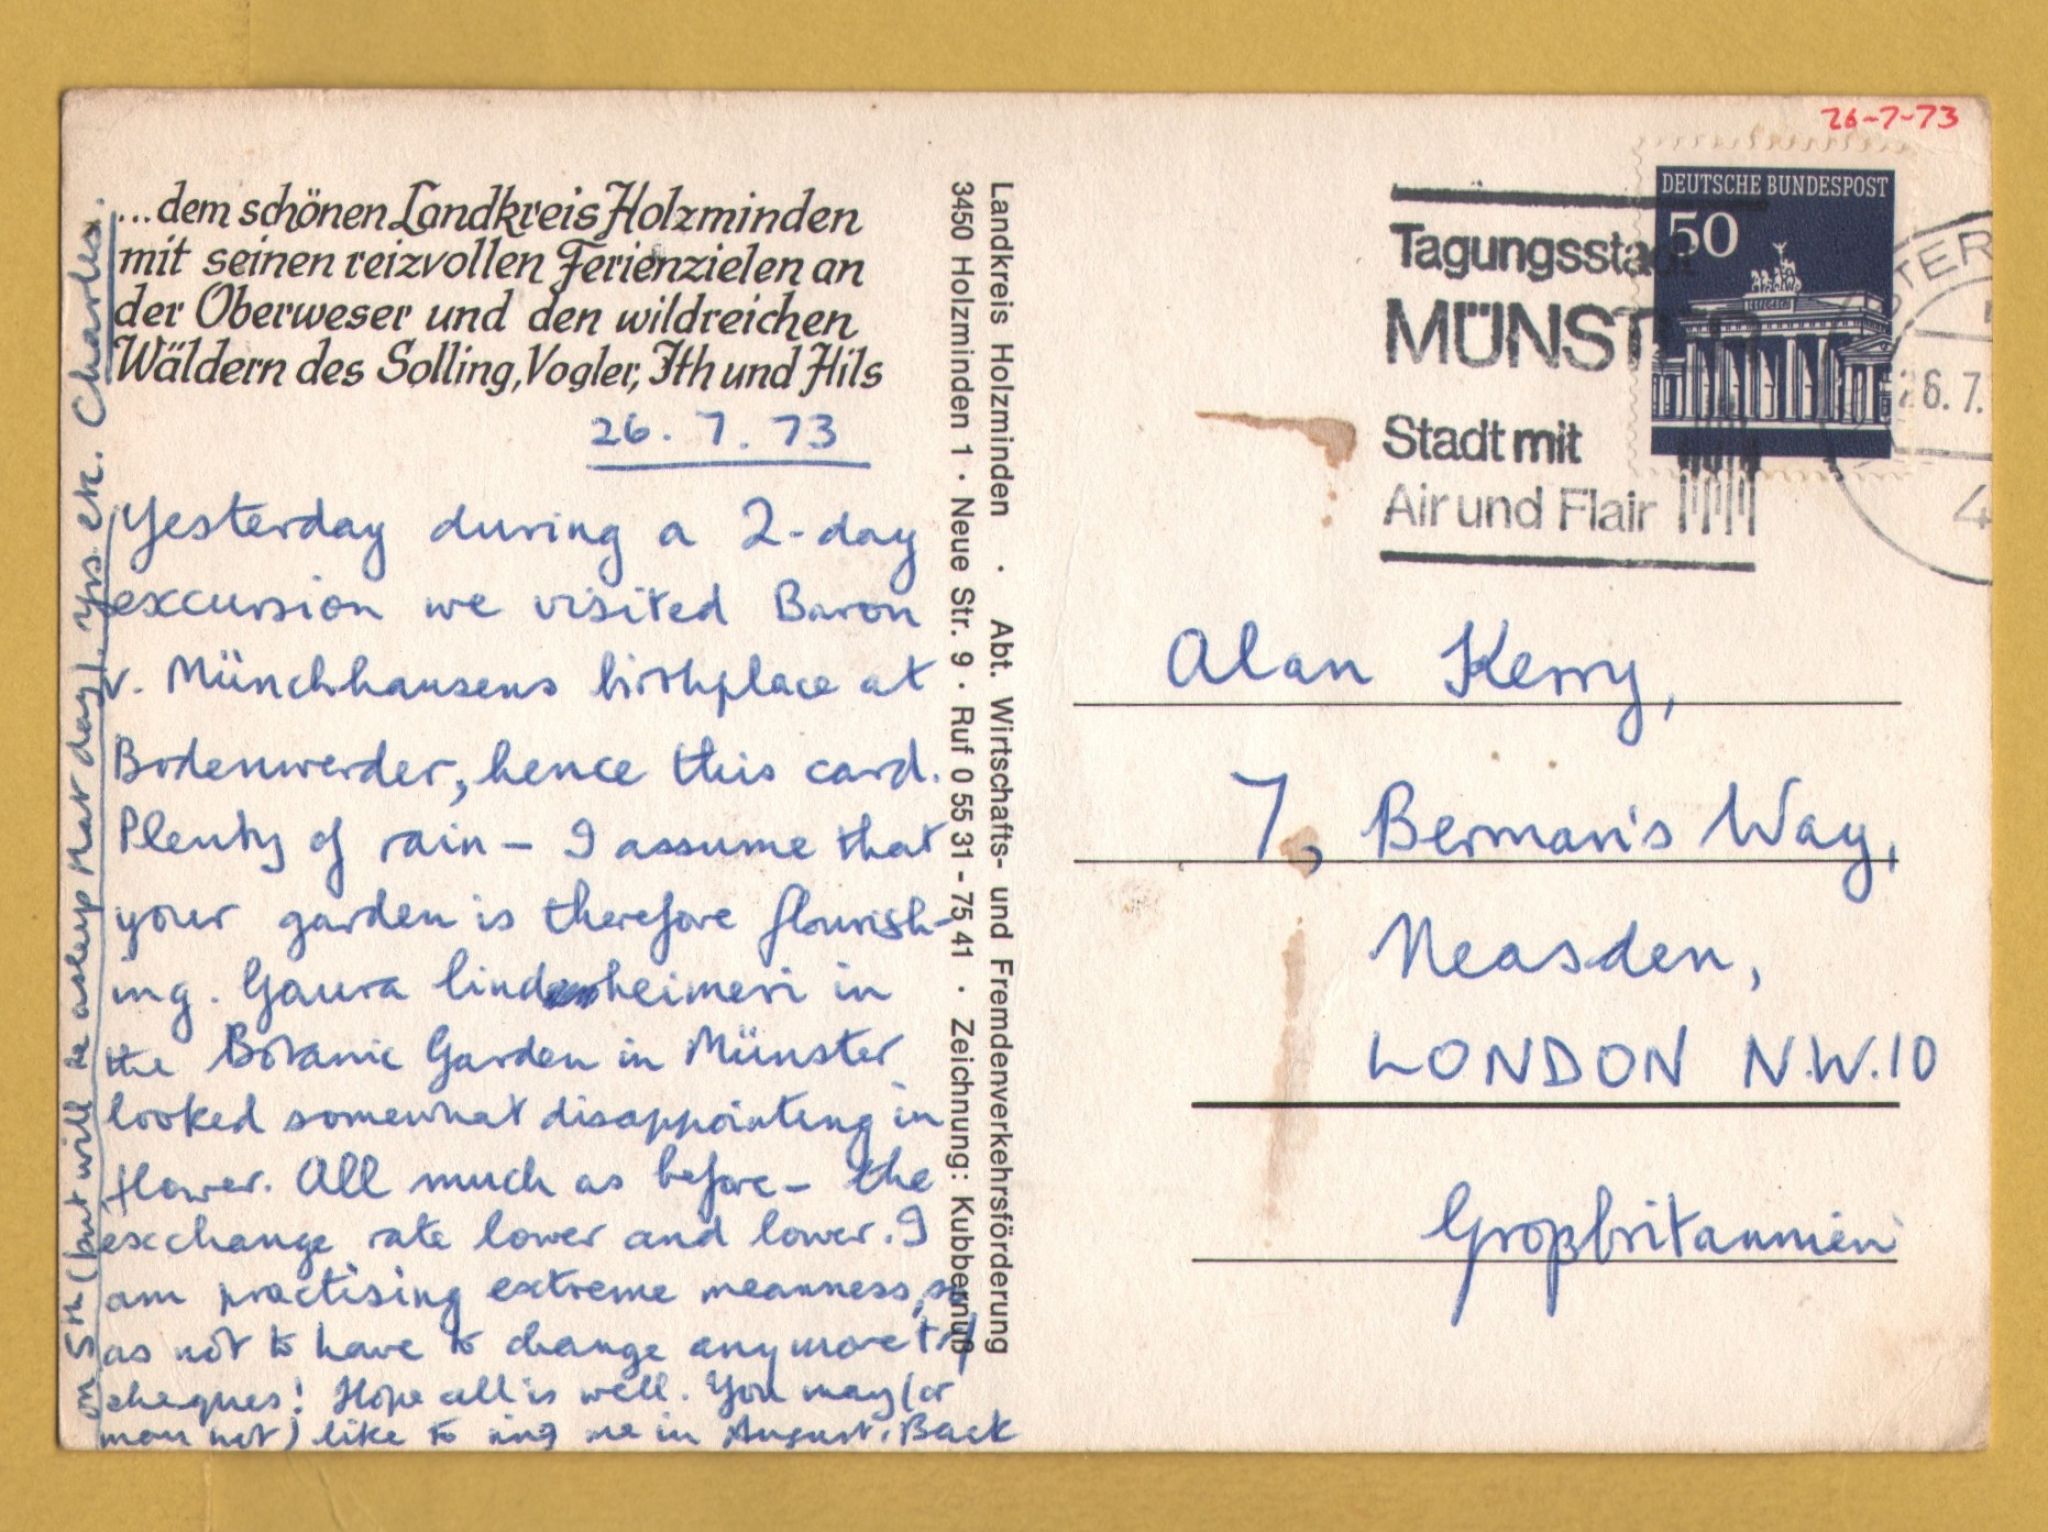 26-7-73
...dem schönen Landkreis Holzminden
mit seinen reizvollen Ferienzielen an
der Oberweser und den wildreichen
Wäldern des Solling, Vogler, Ith und Hils
26.7.73
Yesterday during a 2-day
excursion we visited Baron
v. Münchhausens birthplace at
Bodenwerder, hence this card.
Plenty of rain – I assume that
your garden is therefore flourish-
ing. Gaura lindheimeri in
the Botanic Garden in Münster
looked somewhat disappointing in
flower. All much as before – the
exchange rate lower and lower. I
am practising extreme meanness, so
as not to have to change any more
cheques! Hope all is well. You may (or
may not) like to ring me in August. Back
on 5th (but will be asleep that day). Yrs etc. Charles.
Landkreis Holzminden · Abt. Wirtschafts- und Fremdenverkehrsförderung
3450 Holzminden 1 · Neue Str. 9 · Ruf 0 55 31 - 75 41 · Zeichnung: Kubbernuß
Tagungsstadt
MÜNST
Stadt mit
Air und Flair
DEUTSCHE BUNDESPOST
50
STER
26.7.
4
Alan Kerry,
7, Berman's Way,
Neasden,
LONDON N.W.10
Großbritannien